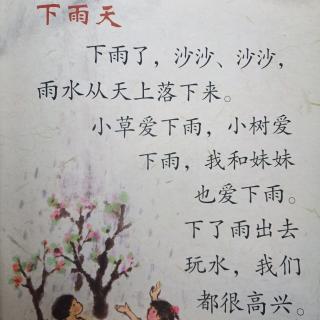 下雨天
下雨了，沙沙、沙沙，
雨水从天上落下来。
小草爱下雨，小树爱
下雨，我和妹妹
也爱下雨。
下了雨出去
玩水，我们
都很高兴。